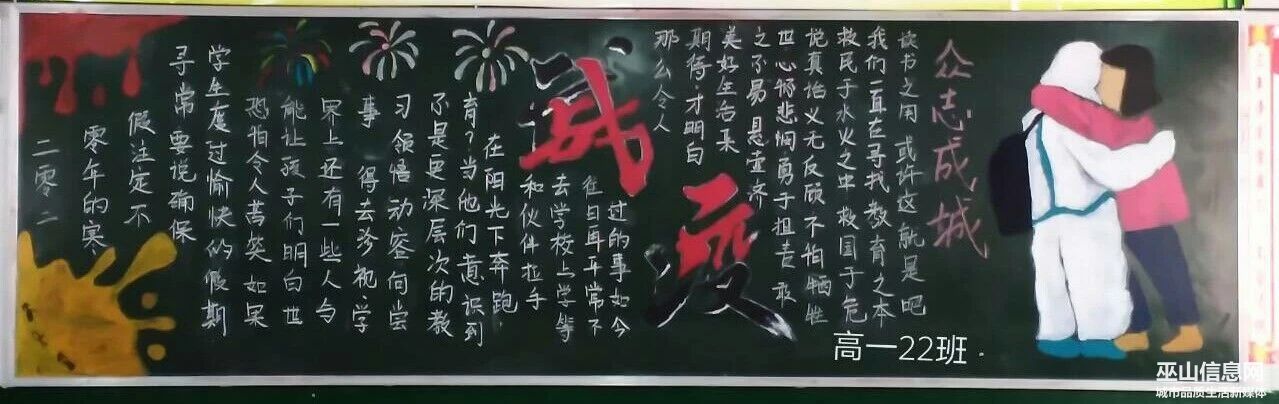 二零二
零年的寒
假注定不
寻常 要说确保
学生度过愉快的假期
恐怕令人苦笑 如果
能让孩子们明白世
界上还有一些人与
事 得去珍视·学
习领悟动容何尝
不是更深层次的教
育?当他们意识到
在阳光下奔跑
和伙伴拉手
去学校上学等
往日再平常不
过的事如今
战疫
那么令人
期待·才明白
美好生活来
之不易 悬壶济
世心怀悲悯勇于担责 敢
说真话义无反顾不怕牺牲
救民于水火之中 救国于危
我们一直在寻找教育之本
读书之用 或许这就是吧
众志成城
高一22班.
巫山信息网
城市品质生活新媒体